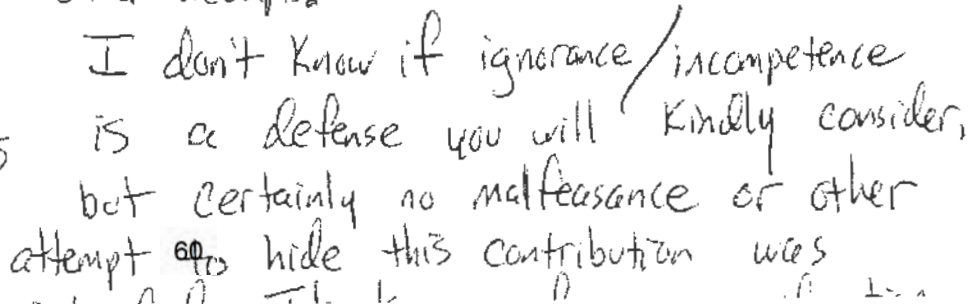 I don't know if ignorance/incompetence
is a defense you will kindly consider,
but certainly no malfeasance or other
attempt to hide this contribution was